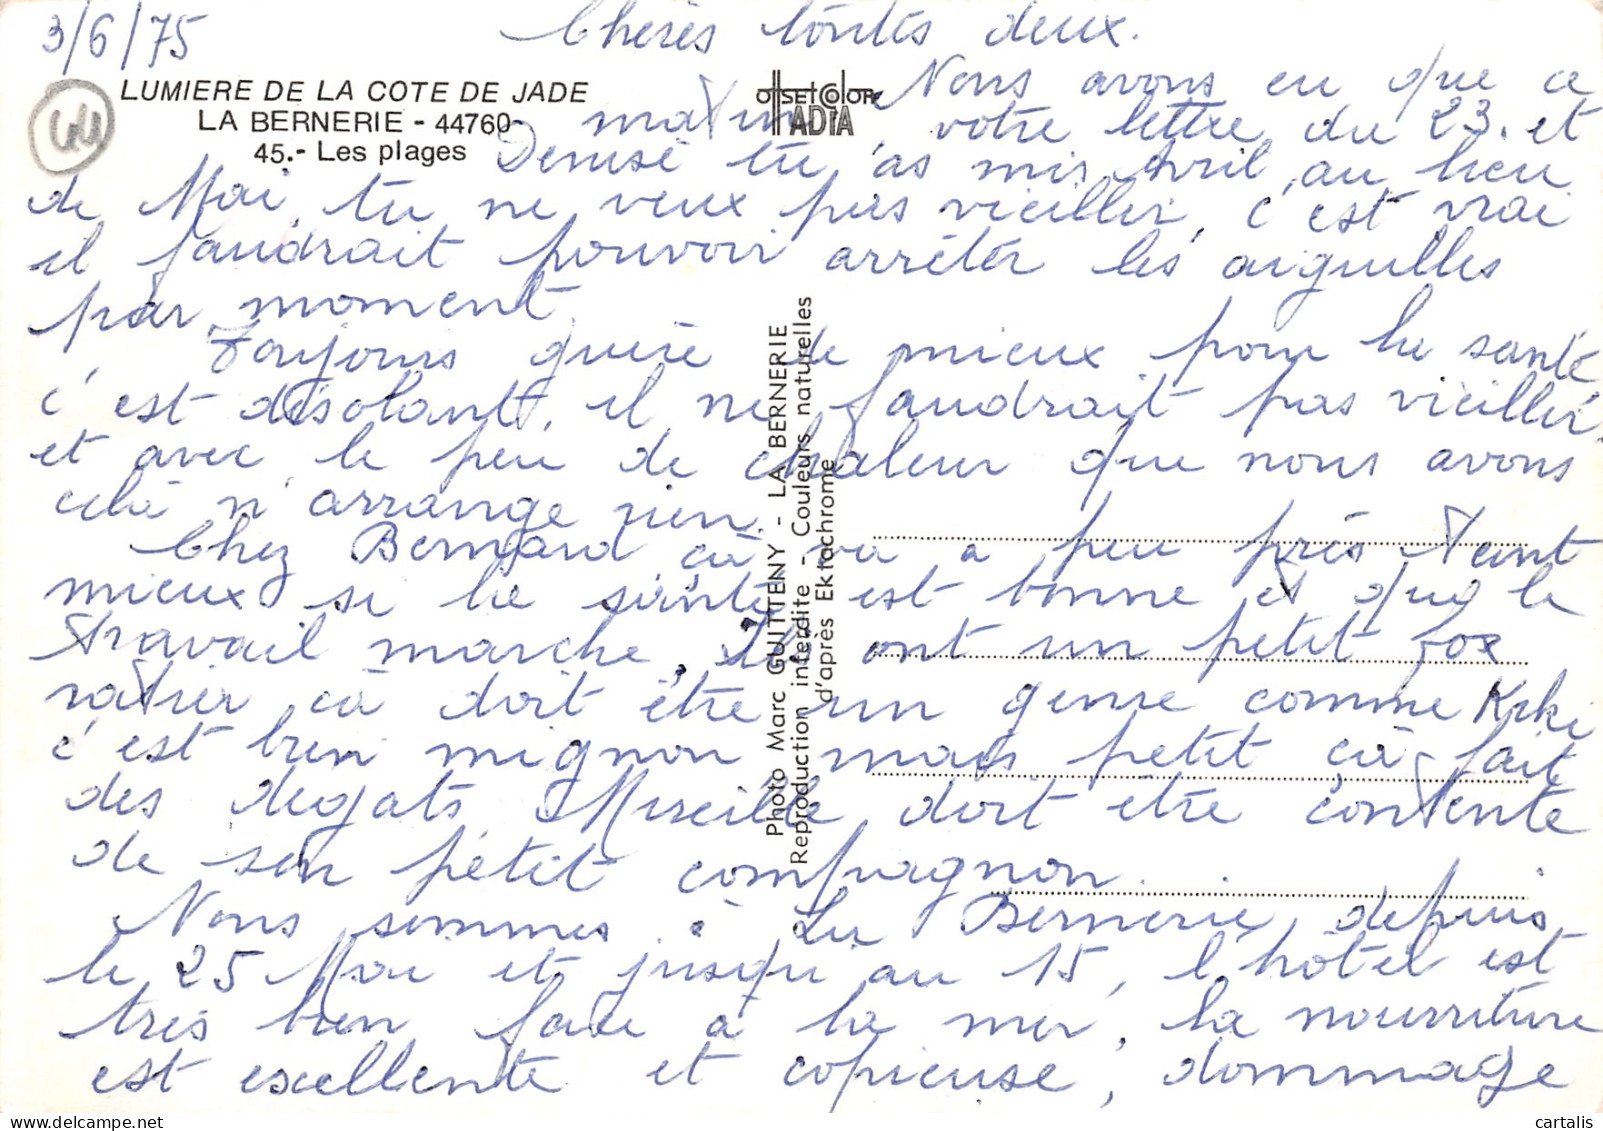 3/6/75
Chères toutes deux.
LUMIERE DE LA COTE DE JADE
LA BERNERIE - 44760
45.- Les plages
OFFSETCOLOR
ADIA
Nous avons eu que ce
matin votre lettre du 23. et
Denise tu as mis Avril, au lieu
de Mai, tu ne veux pas vieillir, c'est vrai
il faudrait pouvoir arrêter les aiguilles
par moment.
Toujours guère de mieux pour la santé
c'est désolant, il ne faudrait pas vieillir
et avec le peu de chaleur que nous avons
celà n'arrange rien.
Chez Bernard çà va a peu près tant
mieux si la santé est bonne et que le
travail marche, ils ont un petit fox
ratier çà doit être un genre comme Kiki
c'est bien mignon mais petit çà fait
des dégats, Mireille doit être contente
de son petit compagnon.
Nous sommes à La Bernerie, depuis
le 25 Mai et jusqu'au 15, l'hôtel est
très bien face à la mer, la nourriture
est excellente et copieuse, dommage
Photo Marc GUITTENY - LA BERNERIE
Reproduction interdite - Couleurs naturelles
d'après Ektachrome
44
cartalis
www.delcampe.net